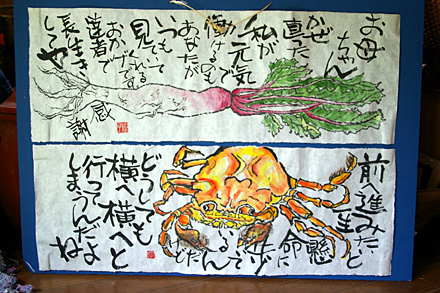 お母
ちゃん
私が
元気で
働けるのも
あなたが
いつもいて
見てくれる
おかげです
達者で
長生き
してや
感謝
前へ進みたいと
一生懸
命に
歩いて
いるんだ
けど
どうしても
横へ横へと
行って
しまうんだよ
ね